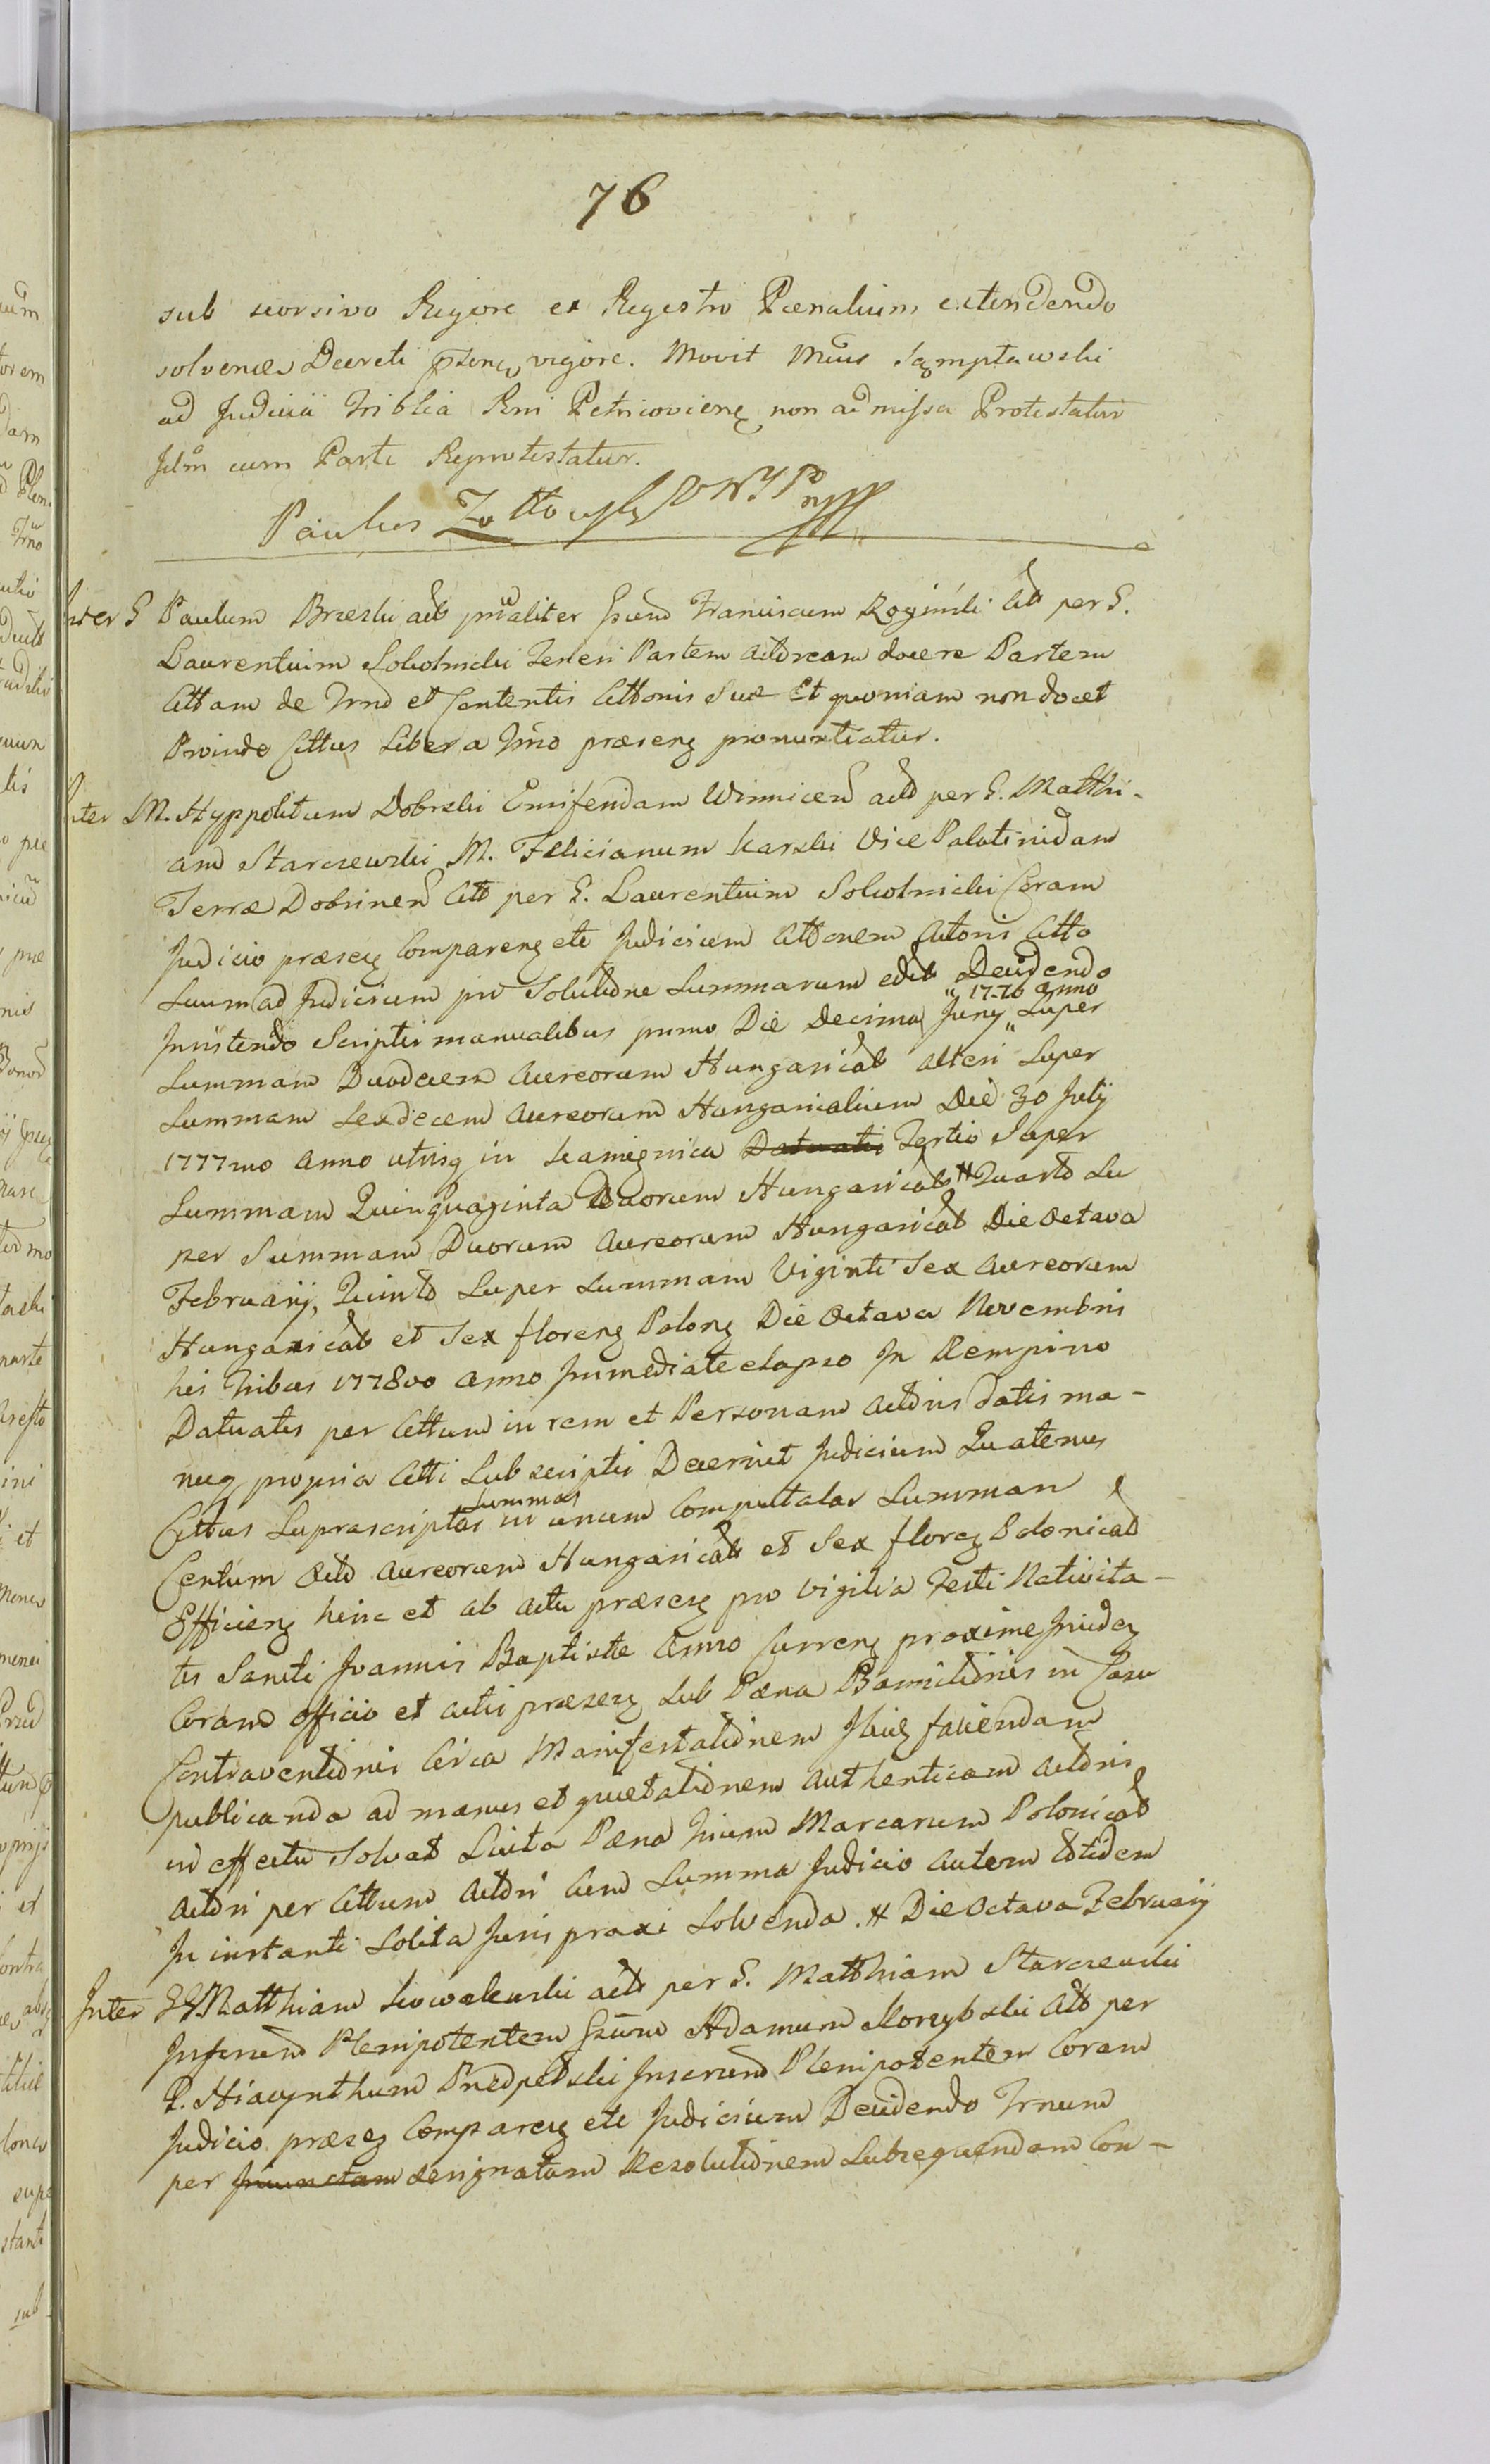 76
sub seorsivo Rigore ex Regestro Pœnalium extendendo
solvenda Decreti vigore. Movit Mcus
ad Judicia Triblia Rni Petricovieng non admissa Protestatur
Idm cum Parte Reprotestatur.
Paulus
Inter G Paulum Brzeski act prńaliter Gsum Franciscum Rogiński Citt per G.
Laurentium Sokolnicki Teneri Partem actoream docere Partem
Cittam de Trno et Contentis Cittonis Suæ Et quoniam non docet
Proinde Cittus Liber a Trno præseng pronuntiatur.
Inter M. Hyppolitum Dobrski Ensiferidam Winnicen act per G. Matthi-
am Starczewski M. Felicianum Karski Vice Palatinidam
Terræ Dobrinen Citt per G. Laurentium Sokolnicki Coram
Judicio præseng Compareng etc Judicium Cittonem Actoris Citto
Suum ad Judicium pro Solutione Summarum edit Decidendo
Insistendo Scriptis manualibus primo Die Decima Juny „ 1776 anno „ Super
Summam Duodecem Aureorum Hungarical alteri Super
Summam Sexdecem Aureorum Hungaricalium Die 30 July
1777mo Anno utrisq in Kamięnica Datuatis Tertio Super
Summam Quinquaginta Duorum Hungarical # Quarto Su
per Summam Duorum Aureorum Hungarical Die Octava
February, Quinto Super Summam Viginti Sex Aureorum
Hungarical et Sex floreng Polong Die Octava Novembris
his tribus 1778vo Anno Immediate elapso In Rempino
Datuatis per Cittum in rem et Personam Actoris datis ma-
nuq propria Citti Subscriptis Decernit Judicium Quatenus
Cittus Suprascriptas Summas in unum Computatas Summam
Centum Octo Aureorum Hungarical et Sex floreng Polonical
Efficieng hinc et ab actu præseng pro Vigilia Festi Nativita-
tis Sancti Joannis Baptistæ Anno Curreng proxime Incideng
Coram Officio et actis præseng Sub Pœna Bannitionis in Casu
Contraventionis Circa Manifestationem faciendam
publicanda ad manus et quietationem authenticam Actoris
in effectu Solvat Luita Pœna trium Marcarum Polonical
Actori per Cittum Actori Cum Summa Judicio autem totidem
In instanti Solita Juris praxi Solvenda. # Die Octava February
Inter GG Matthiam Kowalewski act per G. Matthiam Starczewski
Inserum Plenipotentem Gsum Adamum Skorzybski Citt per
G. Hiacynthum Przedpełski Inserum Plenipotentem Coram
Judicio præseng Compareng etc Judicium Decidendo Trnum
per Iniunctam designatam Resolutionem Subsequendam Con-